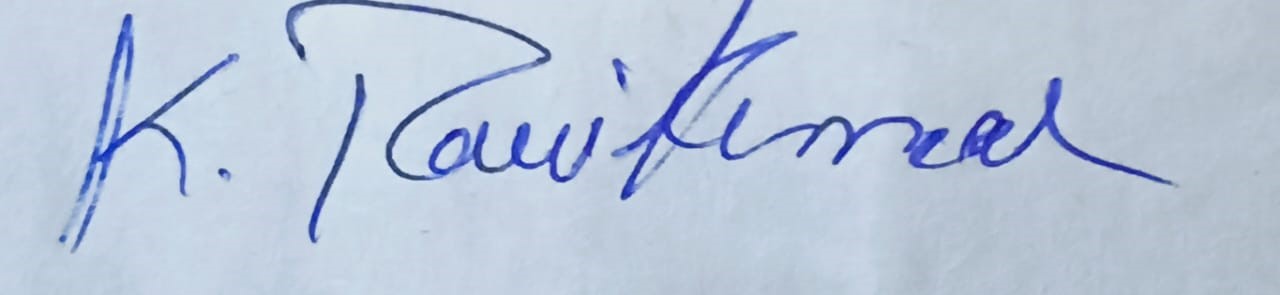 K. Ravikumar